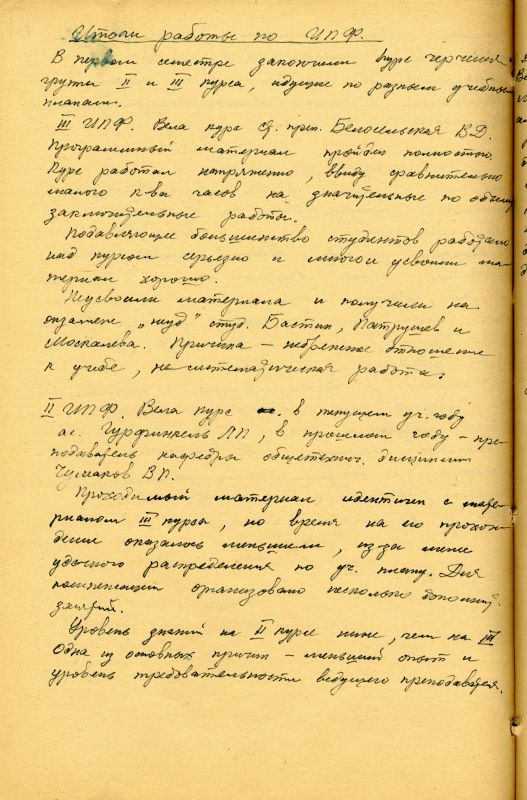 Итоги работы по ИПФ.
В первом семестре закончили курс черчения
группы II и III курса, идущие по разным учебным
планам.
III ИПФ. Вела курс ст. преп. Белосельская В.Д.
Программный материал пройден полностью.
Курс работал напряженно, ввиду сравнительно
малого к-ва часов на значительные по объему
заключительные работы.
Подавляющее большинство студентов работало
над курсом серьезно и многои усвоили ма-
териал хорошо.
Неусвоили материала и получили на
экзамене „неуд" студ. Бастин, Патрушев и
Москалева. Причина – небрежное отношение
к учебе, не систематическая работа.
II ИПФ. Вела курс в текущем уч. году
ас. Гурфинкель ЛП, в прошлом году – пре-
подаватель кафедры общетехнич. дисциплин
Чумаков ВП.
Проходимый материал идентичен с мате-
риалом III курса, но время на его прохож-
дение оказалось меньшим, из за менее
удачного распределения по уч. плану. Для
компенсации организовано несколько дополнит.
занятий.
Уровень знаний на II курсе ниже, чем на III
Одна из основных причин – меньший опыт и
уровень требовательности ведущего преподавателя.